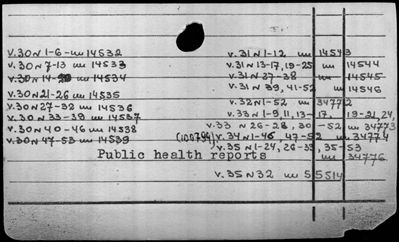 v.30 N 1-6 - uu 14532
v.30 N 7-13 uu 14533
v.30 N 14-20 uu 14534
v.30 N 21-26 uu 14535
v.30 N 27-32 uu 14536
v.30 N 33-39 uu 14537
v.30 N 40-46 uu 14538
v.30 N 47-53 uu 14539
v.31 N 1-12 uu 14543
v.31 N 13-17, 19-25 uu 14544
v.31 N 27-38 uu 14545
v.31 N 39, 41-52 uu 14546
v.32 N 1-52 uu 34772
v.33 N 1-9, 11, 13-17, 19-21, 24,
v.33 N 26-28, 30-52 uu 34773
v.34 N 1-45 47-52 uu 34774
v.35 N 1-24, 26-33, 35-53
Public health reports uu 34776
v.35 N 32 uu 55514